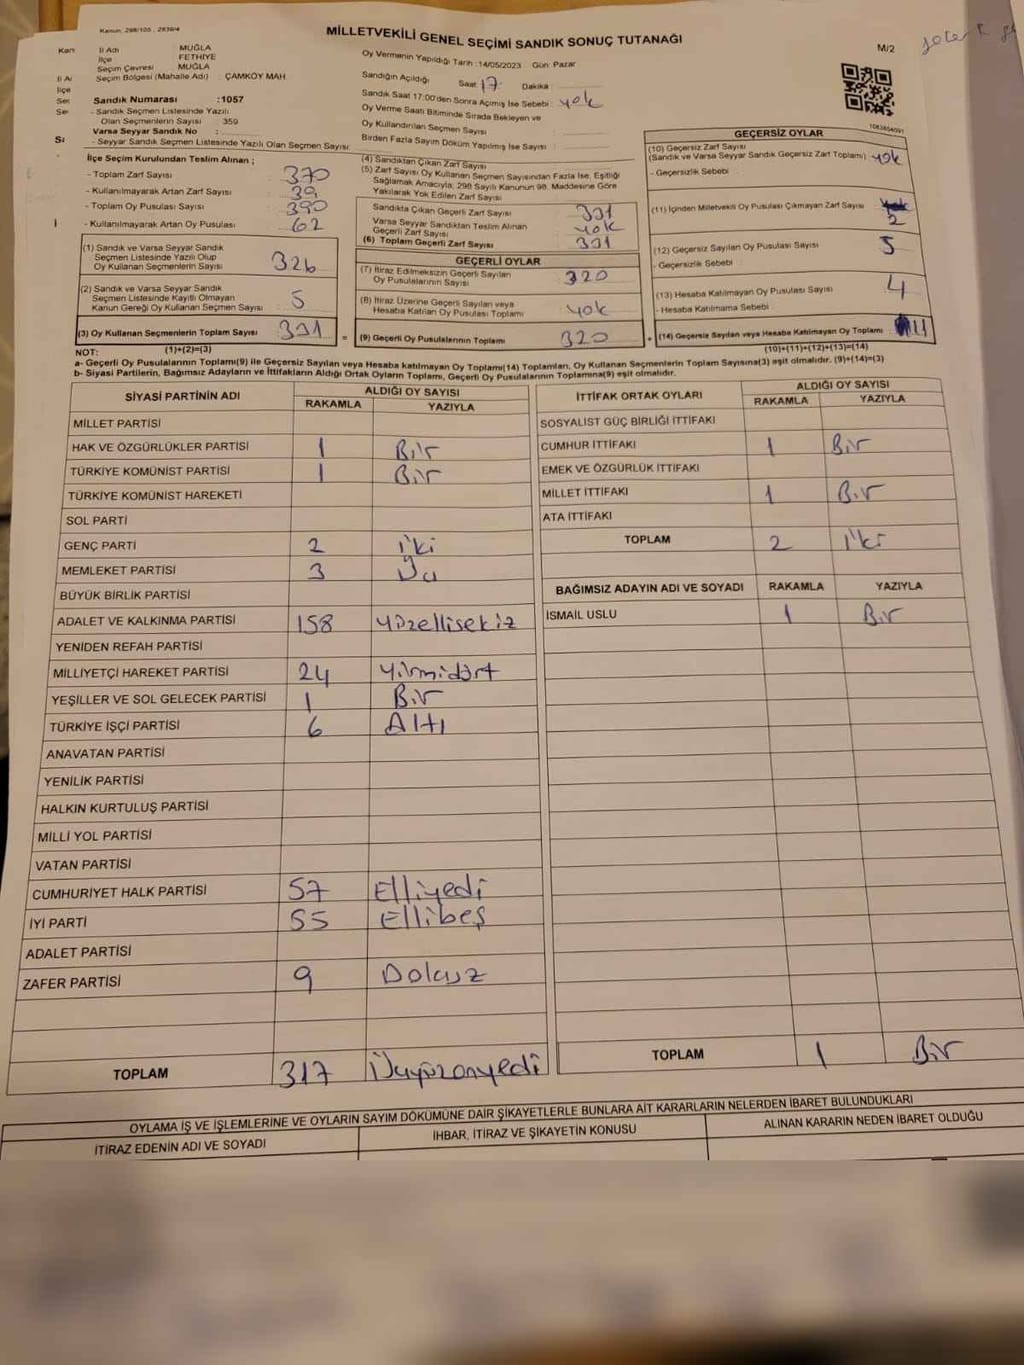 Kanun: 298/105 , 2839/4
MİLLETVEKİLİ GENEL SEÇİMİ SANDIK SONUÇ TUTANAĞI
M/2
İl Adı : MUĞLA
İlçe : FETHİYE
Seçim Çevresi : MUĞLA
Seçim Bölgesi (Mahalle Adı) : ÇAMKÖY MAH
Sandık Numarası :1057
- Sandık Seçmen Listesinde Yazılı
Olan Seçmenlerin Sayısı : 359
Varsa Seyyar Sandık No :
- Seyyar Sandık Seçmen Listesinde Yazılı Olan Seçmen Sayısı
İlçe Seçim Kurulundan Teslim Alınan ;
- Toplam Zarf Sayısı : 370
- Kullanılmayarak Artan Zarf Sayısı : 39
- Toplam Oy Pusulası Sayısı : 390
- Kullanılmayarak Artan Oy Pusulası : 62
(1) Sandık ve Varsa Seyyar Sandık
Seçmen Listesinde Yazılı Olup
Oy Kullanan Seçmenlerin Sayısı : 326
(2) Sandık ve Varsa Seyyar Sandık
Seçmen Listesinde Kayıtlı Olmayan
Kanun Gereği Oy Kullanan Seçmen Sayısı : 5
(3) Oy Kullanan Seçmenlerin Toplam Sayısı : 331
Oy Vermenin Yapıldığı Tarih :14/05/2023 Gün: Pazar
Sandığın Açıldığı Saat: 17 Dakika :
Sandık Saat 17:00'den Sonra Açımış İse Sebebi : yok
Oy Verme Saati Bitiminde Sırada Bekleyen ve
Oy Kullandırılan Seçmen Sayısı :
Birden Fazla Sayım Döküm Yapılmış İse Sayısı :
(4) Sandıktan Çıkan Zarf Sayısı
(5) Zarf Sayısı Oy Kullanan Seçmen Sayısından Fazla İse, Eşitliği
Sağlamak Amacıyla; 298 Sayılı Kanunun 98. Maddesine Göre
Yakılarak Yok Edilen Zarf Sayısı
Sandıkta Çıkan Geçerli Zarf Sayısı 331
Varsa Seyyar Sandıktan Teslim Alınan
Geçerli Zarf Sayısı : yok
(6) Toplam Geçerli Zarf Sayısı : 331
GEÇERLİ OYLAR
(7) İtiraz Edilmeksizin Geçerli Sayılan
Oy Pusulalarının Sayısı : 320
(8) İtiraz Üzerine Geçerli Sayılan veya
Hesaba Katılan Oy Pusulası Toplamı : yok
= (9) Geçerli Oy Pusulalarının Toplamı : 320
1083854091
GEÇERSİZ OYLAR
(10) Geçersiz Zarf Sayısı
(Sandık ve Varsa Seyyar Sandık Geçersiz Zarf Toplamı) : yok
- Geçersizlik Sebebi :
(11) İçinden Milletvekili Oy Pusulası Çıkmayan Zarf Sayısı : 2
(12) Geçersiz Sayılan Oy Pusulası Sayısı : 5
- Geçersizlik Sebebi :
(13) Hesaba Katılmayan Oy Pusulası Sayısı : 4
- Hesaba Katılmama Sebebi :
+ (14) Geçersiz Sayılan veya Hesaba Katılmayan Oy Toplamı : 11
NOT: (1)+(2)=(3) (10)+(11)+(12)+(13)=(14)
a- Geçerli Oy Pusulalarının Toplamı(9) ile Geçersiz Sayılan veya Hesaba katılmayan Oy Toplamı(14) Toplamları, Oy Kullanan Seçmenlerin Toplam Sayısına(3) eşit olmalıdır. (9)+(14)=(3)
b- Siyasi Partilerin, Bağımsız Adayların ve İttifakların Aldığı Ortak Oyların Toplamı, Geçerli Oy Pusulalarının Toplamına(9) eşit olmalıdır.
SİYASİ PARTİNİN ADI ALDIĞI OY SAYISI
RAKAMLA YAZIYLA
MİLLET PARTİSİ
HAK VE ÖZGÜRLÜKLER PARTİSİ 1 Bir
TÜRKİYE KOMÜNİST PARTİSİ 1 Bir
TÜRKİYE KOMÜNİST HAREKETİ
SOL PARTİ
GENÇ PARTİ 2 İki
MEMLEKET PARTİSİ 3 Üç
BÜYÜK BİRLİK PARTİSİ
ADALET VE KALKINMA PARTİSİ 158 Yüzellisekiz
YENİDEN REFAH PARTİSİ
MİLLİYETÇİ HAREKET PARTİSİ 24 Yirmidört
YEŞİLLER VE SOL GELECEK PARTİSİ 1 Bir
TÜRKİYE İŞÇİ PARTİSİ 6 Altı
ANAVATAN PARTİSİ
YENİLİK PARTİSİ
HALKIN KURTULUŞ PARTİSİ
MİLLİ YOL PARTİSİ
VATAN PARTİSİ
CUMHURİYET HALK PARTİSİ 57 Elliyedi
İYİ PARTİ 55 Ellibeş
ADALET PARTİSİ
ZAFER PARTİSİ 9 Dokuz
TOPLAM 317 Üçyüzonyedi
İTTİFAK ORTAK OYLARI ALDIĞI OY SAYISI
RAKAMLA YAZIYLA
SOSYALİST GÜÇ BİRLİĞİ İTTİFAKI
CUMHUR İTTİFAKI 1 Bir
EMEK VE ÖZGÜRLÜK İTTİFAKI
MİLLET İTTİFAKI 1 Bir
ATA İTTİFAKI
TOPLAM 2 İki
BAĞIMSIZ ADAYIN ADI VE SOYADI RAKAMLA YAZIYLA
İSMAİL USLU 1 Bir
TOPLAM 1 Bir
OYLAMA İŞ VE İŞLEMLERİNE VE OYLARIN SAYIM DÖKÜMÜNE DAİR ŞİKAYETLERLE BUNLARA AİT KARARLARIN NELERDEN İBARET BULUNDUKLARI
İTİRAZ EDENİN ADI VE SOYADI İHBAR, İTİRAZ VE ŞİKAYETİN KONUSU ALINAN KARARIN NEDEN İBARET OLDUĞU